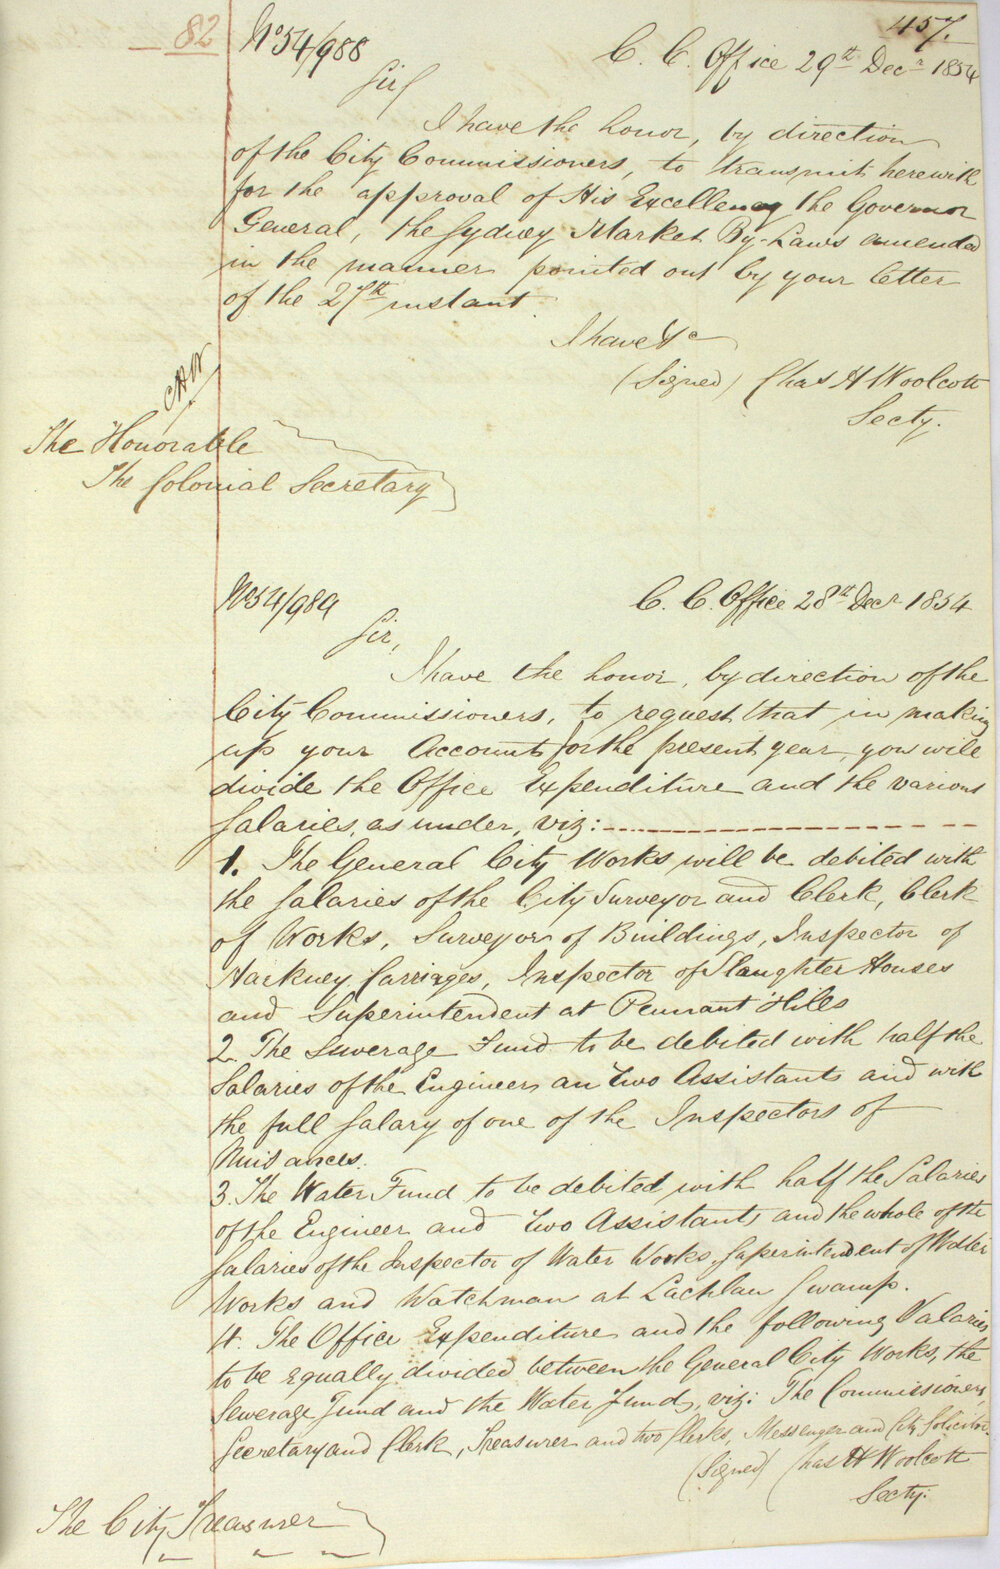 457.
82
No 54/988
C. C. Office 29th Decr 1854
Sir
I have the honor, by direction
of the City Commissioners, to transmit herewith
for the approval of His Excellency the Governor
General, the Sydney Market By-Laws amended
in the manner pointed out by your letter
of the 27th instant.
I have &c
(Signed) Chas H Woolcott
Secty.
CHW
The Honorable
The Colonial Secretary
No 54/989
C. C. Office 28th Decr 1854
Sir,
I have the honor, by direction of the
City Commissioners, to request that in making
up your Accounts for the present year, you will
divide the Office Expenditure and the various
Salaries, as under, viz:
1. The General City Works will be debited with
the Salaries of the City Surveyor and Clerk, Clerk
of Works, Surveyor of Buildings, Inspector of
Hackney Carriages, Inspector of Slaughter Houses
and Superintendent at Pennant Hills
2. The Sewerage Fund to be debited with half the
Salaries of the Engineer an Two Assistants and with
the full Salary of one of the Inspectors of
Nuisances.
3. The Water Fund to be debited with half the Salaries
of the Engineer and Two Assistants and the whole of the
Salaries of the Inspector of Water Works, Superintendent of Water
Works and Watchman at Lachlan Swamp.
4. The Office Expenditure and the following Salaries
to be equally divided between the General City Works, the
Sewerage Fund and the Water Fund, viz: The Commissioners,
Secretary and Clerk, Treasurer and two Clerks, Messenger and City Solicitor.
(Signed) Chas H Woolcott
Secty.
The City Treasurer